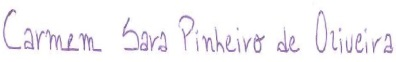 Carmem Sara Pinheiro de Oliveira